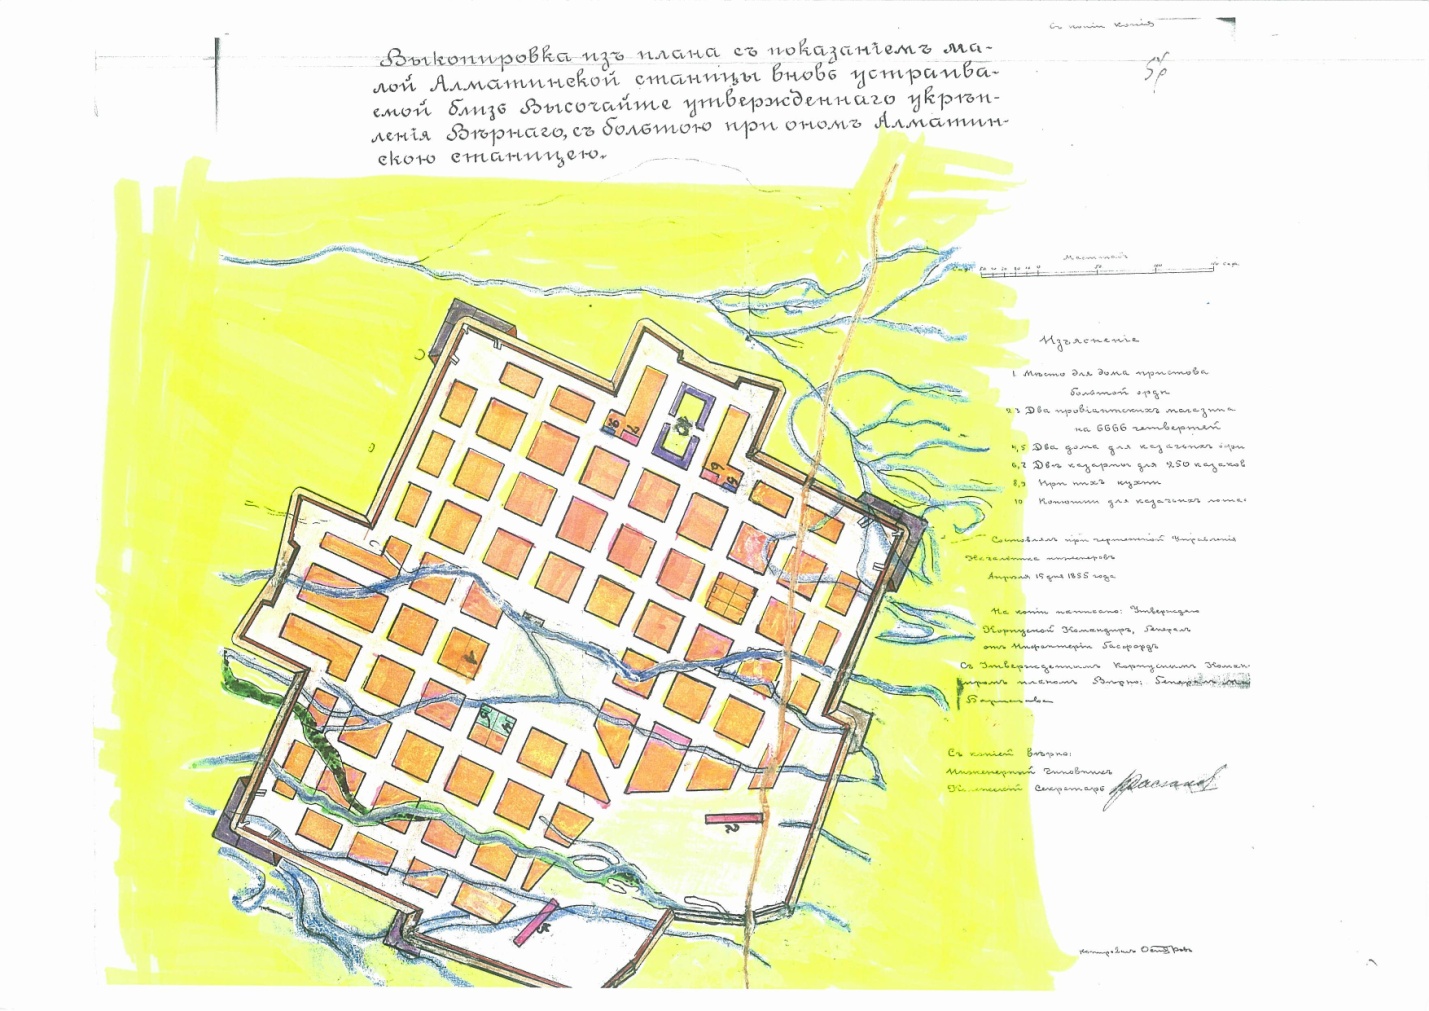 Съ копiи копiя
Выкопировка изъ плана съ показанiемъ ма-
лой Алматинской станицы вновь устраива-
емой близь Высочайше утвержденнаго укрѣп-
ленiя Вѣрнаго, съ большою при ономъ Алматин-
скою станицею.
Масштабъ
Изъясненiе
1 Мѣсто для дома пристава
большой орды
2,3 Два провiантскихъ магазина
на 6666 четвертей
4,5 Два дома для казачьихъ
6,7 Двѣ казармы для 250 казаковъ
8,9 При нихъ кухни
10 Конюшни для казачьихъ
Составленъ при чертежной Управленiя
Начальника инженеровъ
Апрѣля 15 дня 1855 года
На копiи написано: Утверждаю
Корпусной Командиръ, Генералъ
отъ Инфантерiи Гасфордъ
Съ Утвержденнымъ Корпуснымъ Коман-
диромъ планомъ Вѣрно: Генералъ
Съ копiей вѣрно:
Инженерный чиновникъ
Секретарь
копировалъ